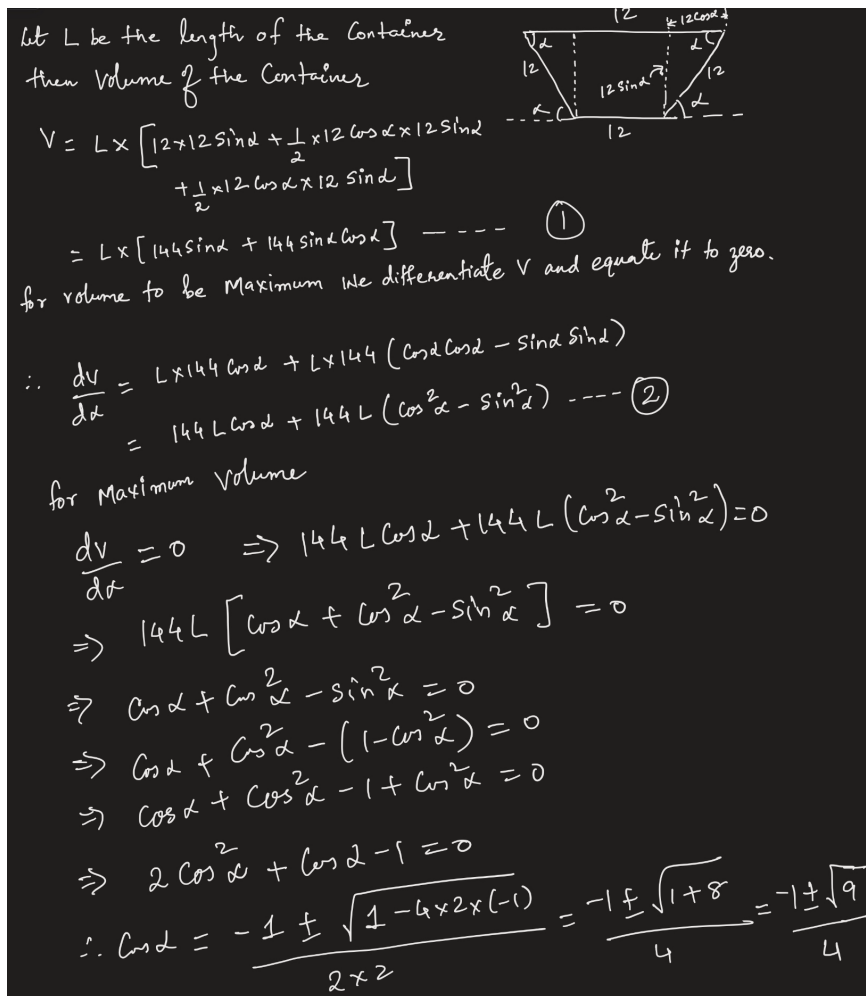 Let L be the length of the Container
then Volume of the Container
V = L × [12×12 Sinα + 1/2 × 12 Cosα × 12 Sinα
+ 1/2 × 12 Cosα × 12 Sinα]
= L × [144 Sinα + 144 Sinα Cosα] ---- ①
for volume to be Maximum We differentiate V and equate it to zero.
∴ dv/dα = L×144 Cosα + L×144 (Cosα Cosα − Sinα Sinα)
= 144 L Cosα + 144 L (Cos²α − Sin²α) ---- ②
for Maximum Volume
dv/dα = 0 ⇒ 144 L Cosα + 144 L (Cos²α − Sin²α) = 0
⇒ 144L [Cosα + Cos²α − Sin²α] = 0
⇒ Cosα + Cos²α − Sin²α = 0
⇒ Cosα + Cos²α − (1−Cos²α) = 0
⇒ Cosα + Cos²α − 1 + Cos²α = 0
⇒ 2 Cos²α + Cosα − 1 = 0
∴ Cosα = −1 ± √(1−4×2×(−1)) / 2×2 = −1 ± √(1+8) / 4 = −1 ± √9 / 4
12
12 Cosα
α
α
12
12 Sinα
12
α
α
12